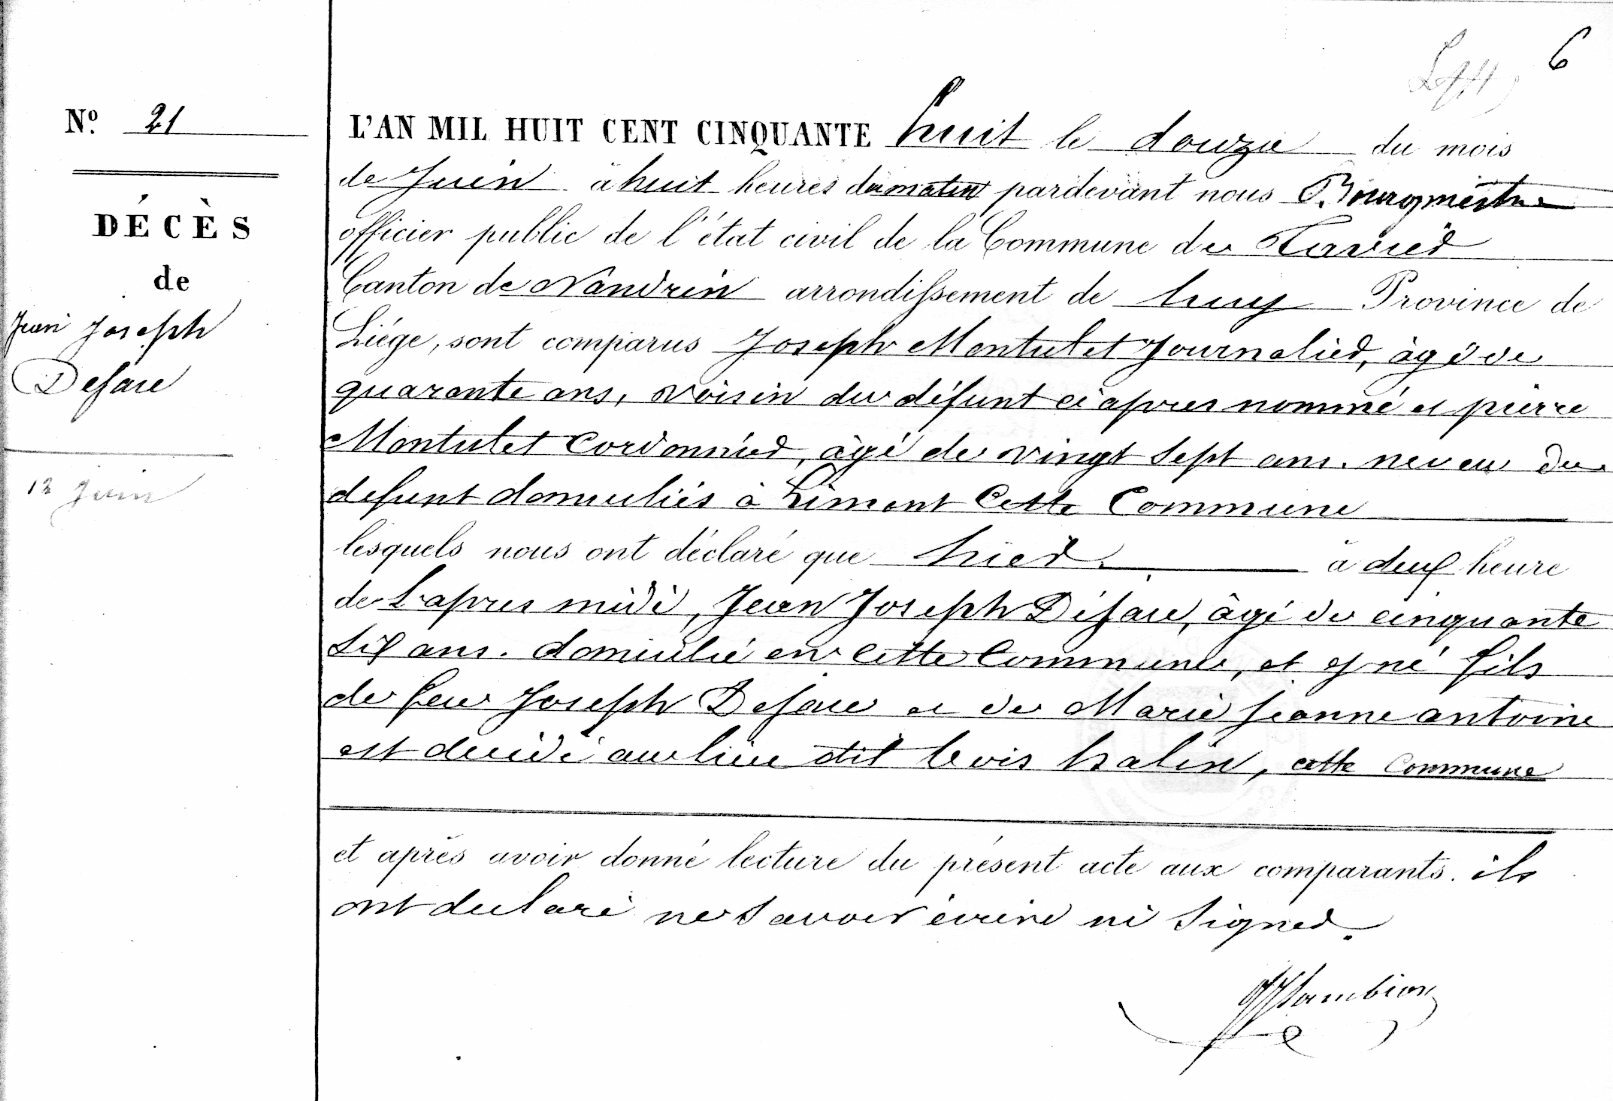 6
Nº 21
DÉCÈS
de
Jean Joseph
Defare
12 Juin
L'AN MIL HUIT CENT CINQUANTE huit le douze du mois
de Juin à huit heures du matin pardevant nous Bourgmestre
officier public de l'état civil de la Commune de Tavier
Canton de Nandrin arrondissement de huy Province de
Liége, sont comparus Joseph Montulet Journalier, âgé de
quarante ans, voisin du défunt ci apres nommé et pierre
Montulet Cordonnier, âgé de vingt Sept ans. neveu du
defunt domiciliés à Limont Cette Commune
lesquels nous ont déclaré que hier à deux heure
de L'apres midi, Jean Joseph Défare, âgé de cinquante
Six ans. domicilié en cette Commune, et y né fils
de feu Joseph Defare et de Marie jeanne antoine
est decidé au lieu dit bois halin, cette Commune
et après avoir donné lecture du présent acte aux comparants. ils
ont declaré ne Savoir écrire ni Signer.